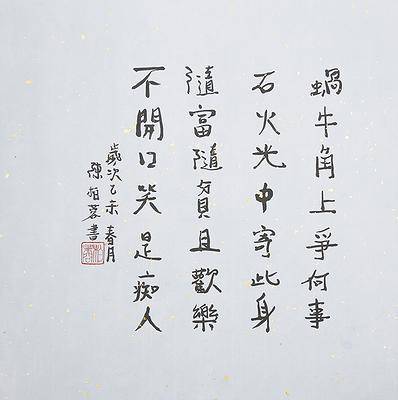 蝸牛角上爭何事
石火光中寄此身
隨富隨貧且歡樂
不開口笑是痴人
歲次乙未春月
陳蓉書